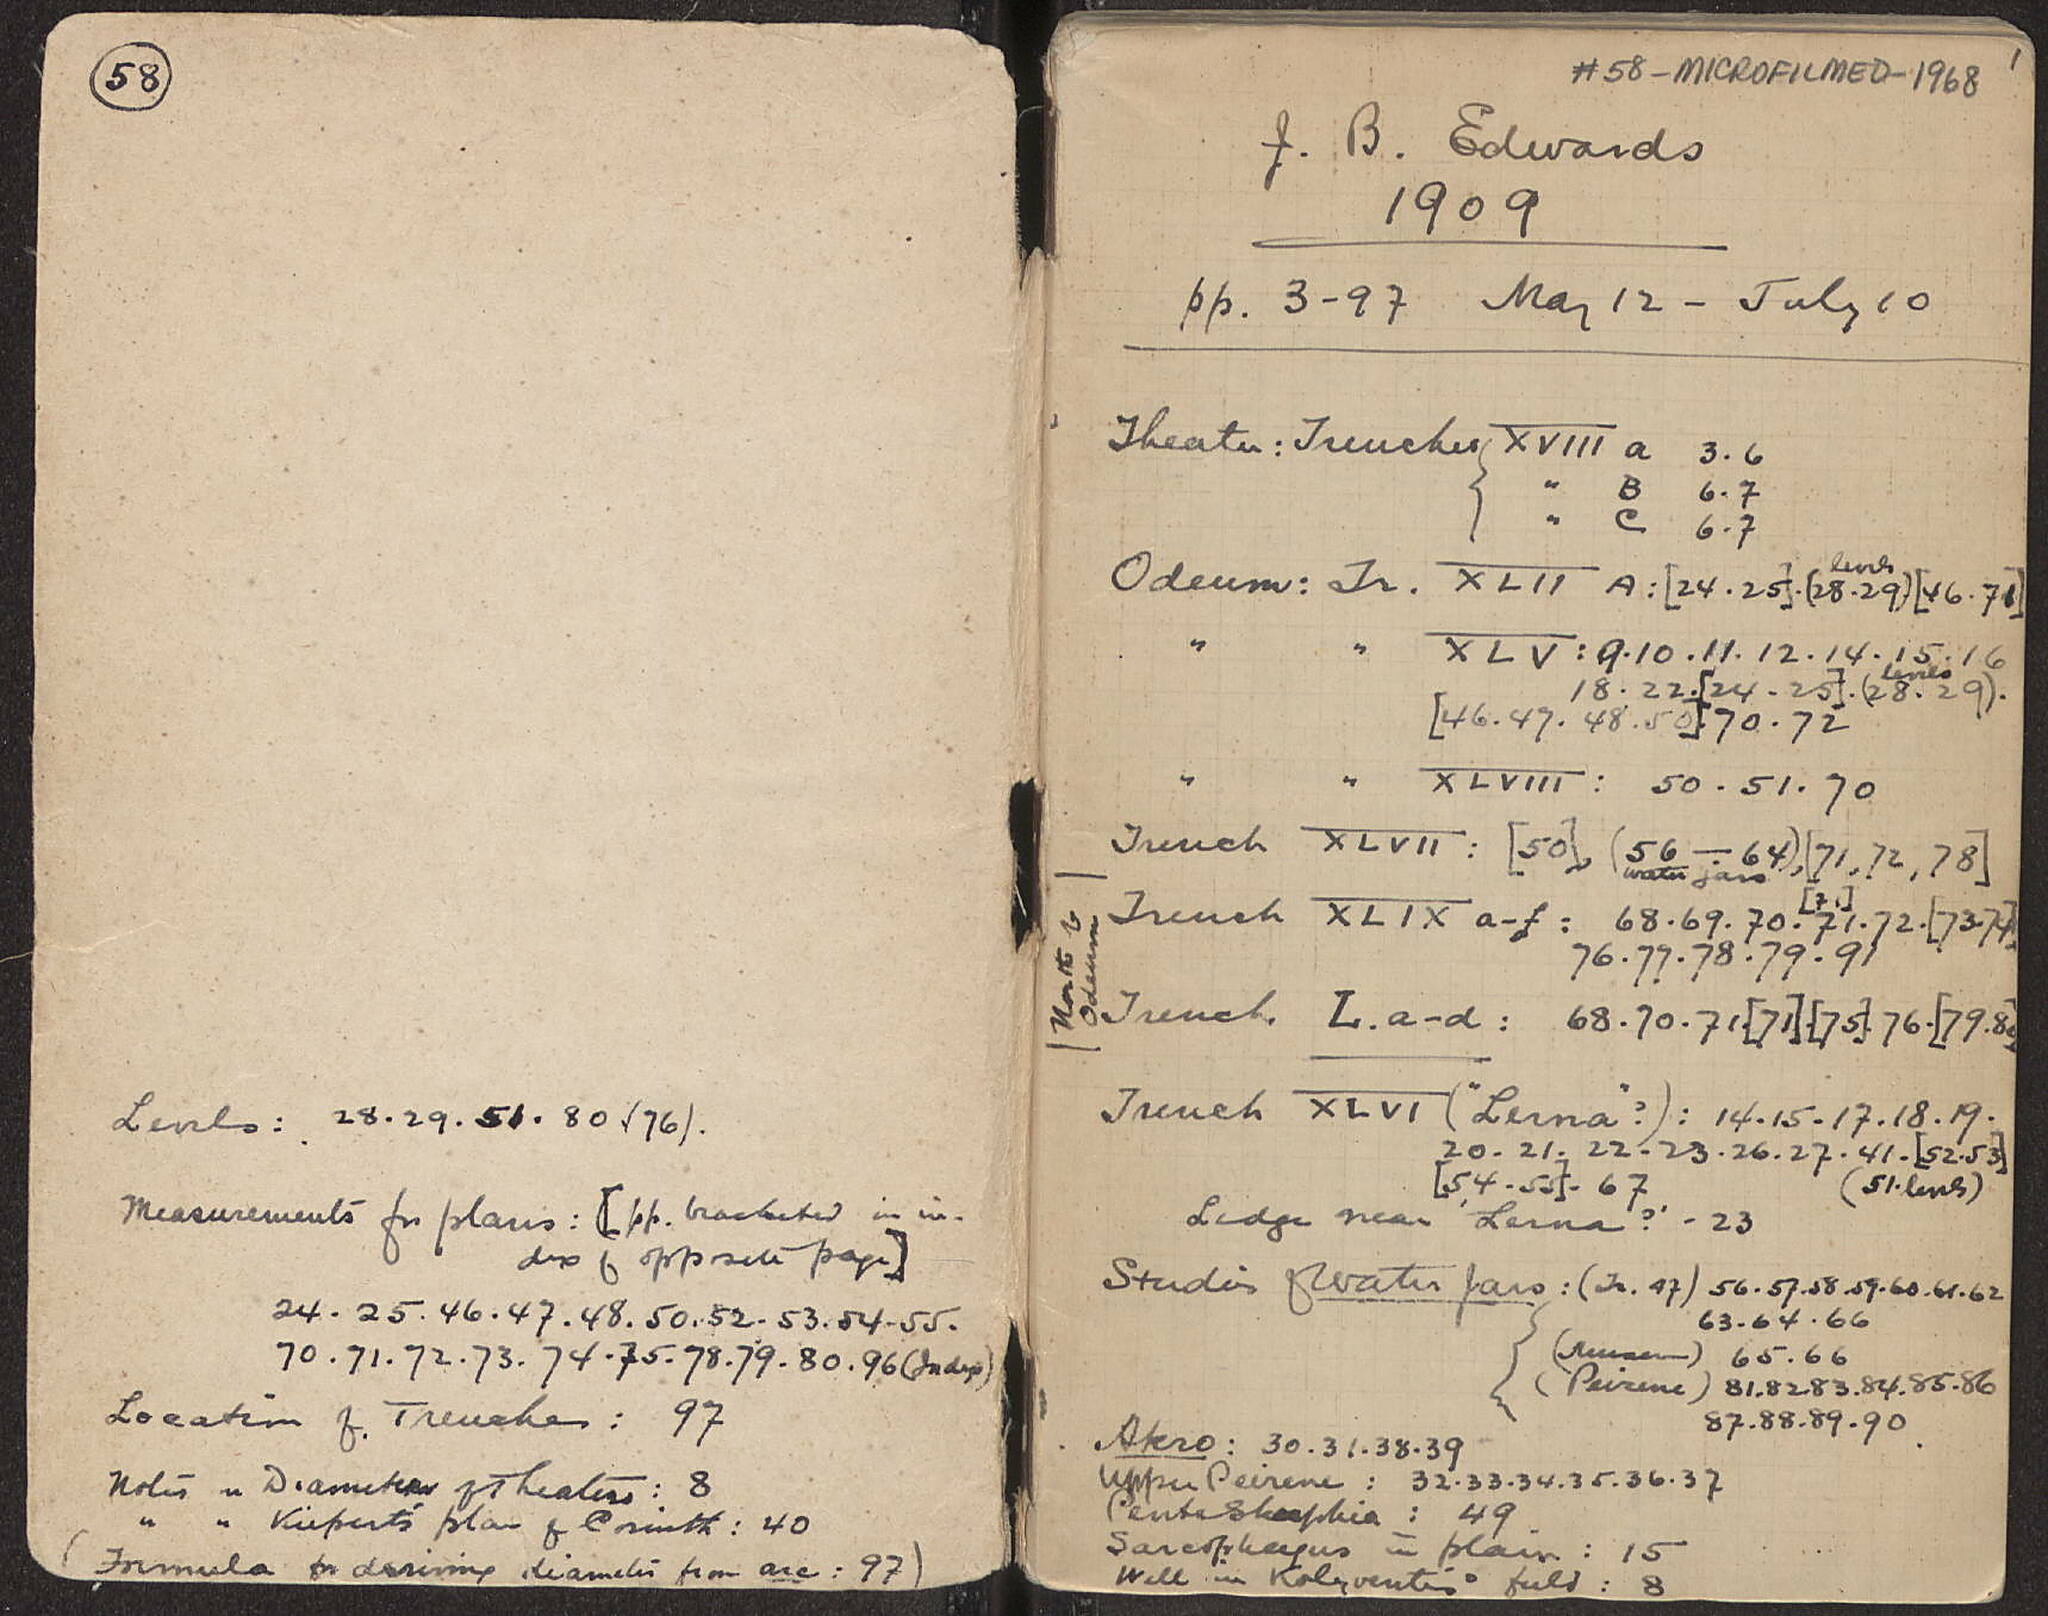 58
Levels: 28.29.51.80 (76).
Measurements for plans: [pp. bracketed in in-
dex of opposite page]
24.25.46.47.48.50.52.53.54.55.
70.71.72.73.74.75.78.79.80.96 (Index)
Location of Trenches: 97
Notes on Diameter of Theaters: 8
" " Kiepert's plan of Corinth: 40
(Formula for deriving diameter from arc: 97)
#58-MICROFILMED-1968
1
J. B. Edwards
1909
pp. 3-97 May 12 - July 10
Theater: Trenches { XVIII a 3.6
" B 6.7
" C 6.7
levels
Odeum: Tr. XLII A: [24.25].(28.29)[46.71]
" " XLV: 9.10.11.12.14.15.16
levels
18.22.[24-25].(28.29).
[46.47.48.50].70.72
" " XLVIII: 50.51.70
Trench XLVII: [50], (56-64),[71,72,78]
water jars
[71]
Trench XLIX a-f: 68.69.70.71.72.[73.74]
76.77.78.79.91
North of
Odeum
Trench L. a-d: 68.70.71.[71].[75].76.[79.80]
Trench XLVI ("Lerna"?): 14.15-17.18.19.
20.21.22-23.26.27.41.[52.53]
[54-55]-67 (51.levels)
Ledge near 'Lerna?' - 23
Studies of Water Jars: (Tr. 47) 56.57.58.59.60.61.62
63.64.66
(Museum) 65.66
(Peirene) 81.82.83.84.85.86
87.88.89.90
Akro: 30.31.38.39
Upper Peirene: 32.33.34.35.36.37
49
Sarcophagus in plain: 15
Well in field: 8